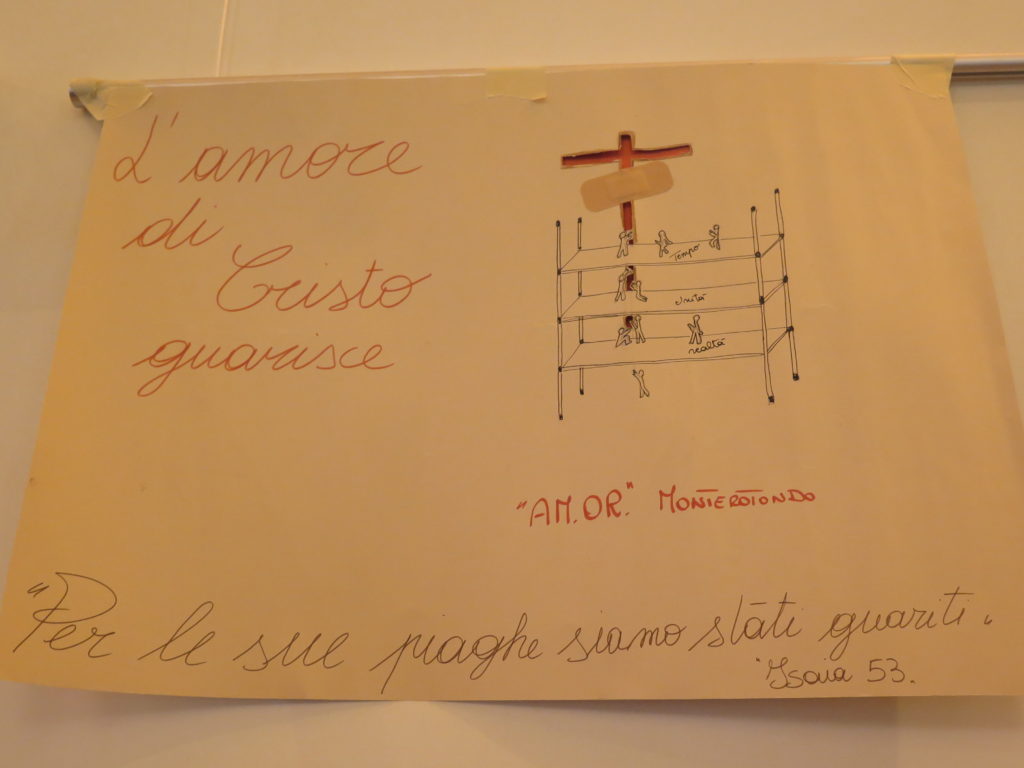 L'amore
di
Cristo
guarisce
Tempo
realtà
"AM.OR." MONTEROTONDO
"Per le sue piaghe siamo stati guariti"
Isaia 53.